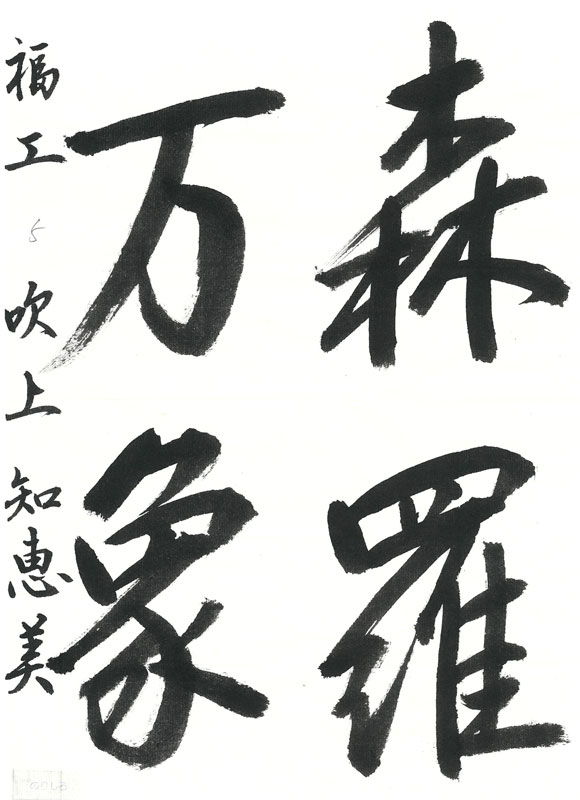 森羅
万象
福工 5 吹上 知恵美